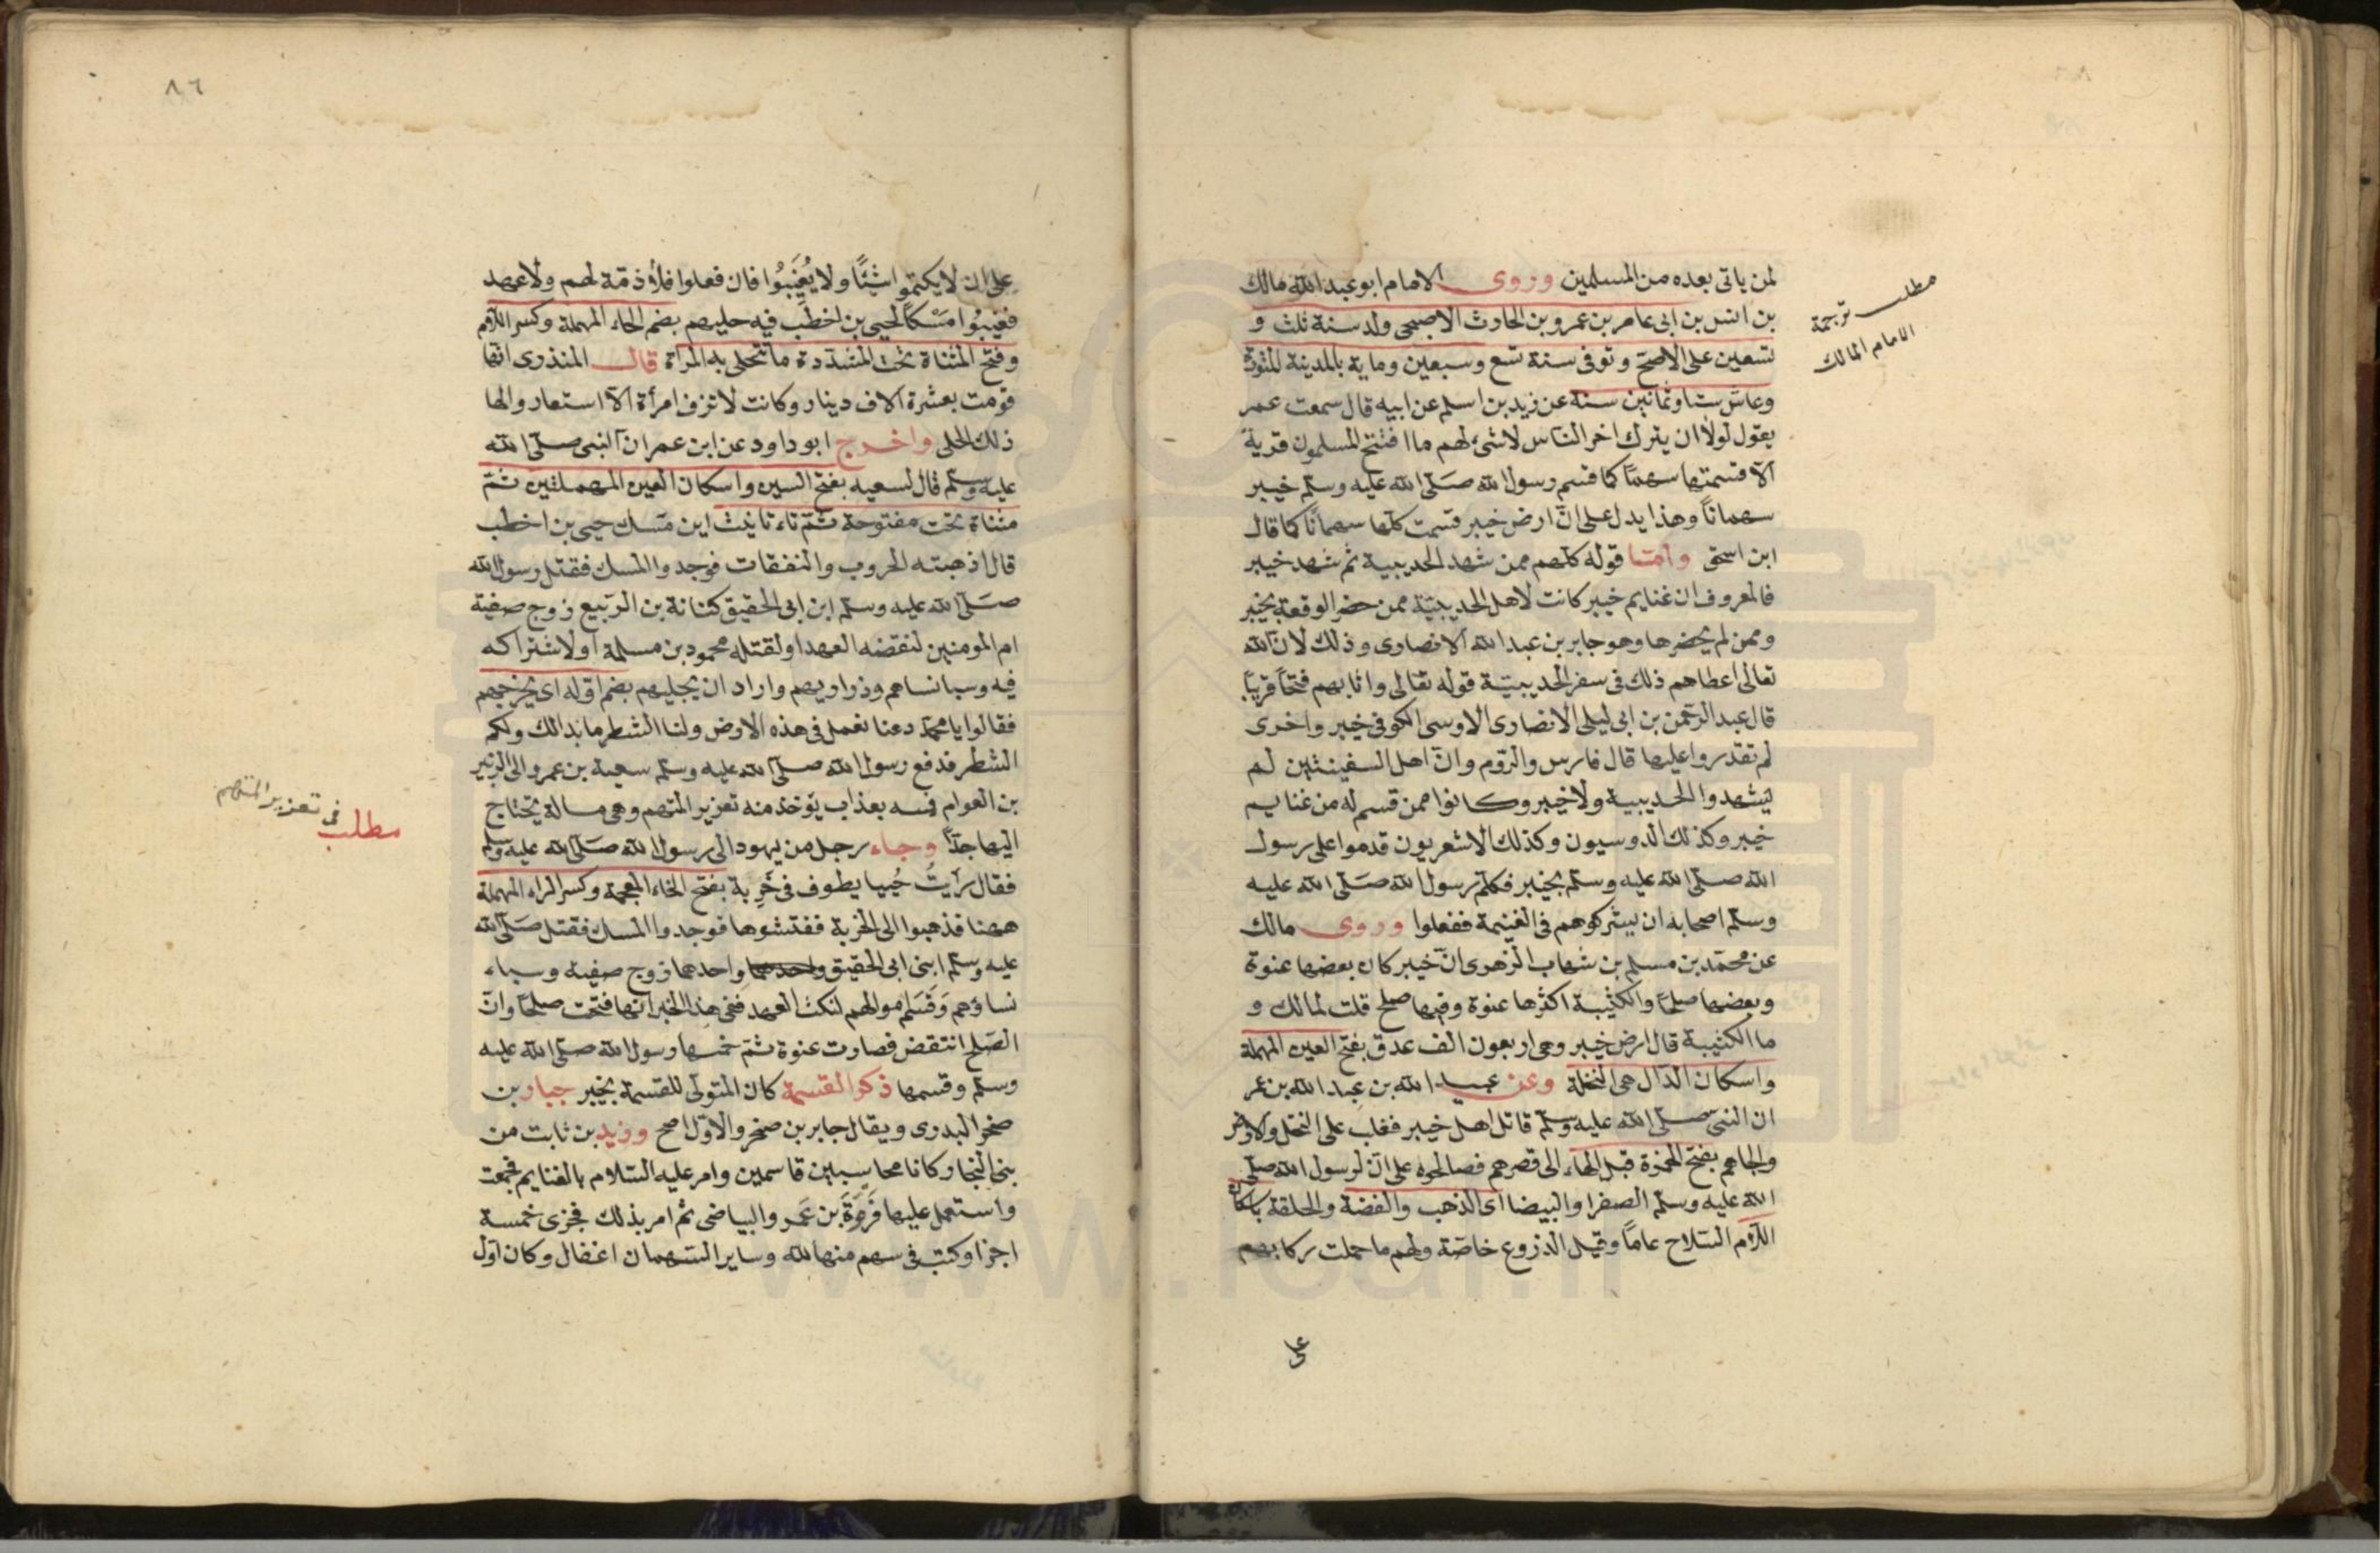 لمن ياتى بعده من المسلمين وروى الامام ابو عبد الله مالك
بن انس بن ابى عامر بن عمرو بن الحارث الاصبحى ولد سنة ثلث و
تسعين على الاصح وتوفى سنة تسع وسبعين وماية بالمدينة المنورة
وعاش ستا وثمانين سنة عن زيد بن اسلم عن ابيه قال سمعت عمر
يقول لولا ان يترك اخر الناس لا شئ لهم ما افتتح المسلمون قرية
الا قسمتها سهمانا كما قسم رسول الله صلى الله عليه وسلم خيبر
سهمانا وهذا يدل على ان ارض خيبر قسمت كلها سهمانا كما قال
ابن اسحق واما قوله كلهم ممن شهد الحديبية ثم شهد خيبر
فالمعروف ان غنايم خيبر كانت لاهل الحديبية ممن حضر الوقعة بخيبر
وممن لم يحضرها وهو جابر بن عبد الله الانصارى وذلك لان الله
تعالى اعطاهم ذلك فى سفر الحديبية قوله تعالى واثابهم فتحا قريبا
قال عبد الرحمن بن ابى ليلى الانصارى الاوسى الكوفى خيبر واخرى
لم تقدروا عليها قال فارس والروم وان اهل السفينتين لم
يشهدوا الحديبية ولا خيبر وكانوا ممن قسم له من غنايم
خيبر وكذلك الدوسيون وكذلك الاشعريون قدموا على رسول
الله صلى الله عليه وسلم بخيبر فكلم رسول الله صلى الله عليه
وسلم اصحابه ان يشركوهم فى الغنيمة ففعلوا وروى مالك
عن محمد بن مسلم بن شهاب الزهرى ان خيبر كان بعضها عنوة
وبعضها صلحا والكثيبة اكثرها عنوة وفيها صلح قلت لمالك و
ما الكثيبة قال ارض خيبر وهى اربعون الف عدق بفتح العين المهملة
واسكان الدال هى النخلة وعن عبيد الله بن عبد الله بن عمر
ان النبى صلى الله عليه وسلم قاتل اهل خيبر فغلب على النخل والارض
والجاهم بفتح الهمزة قبل الهاء الى قصرهم فصالحوه على ان لرسول الله صلى
الله عليه وسلم الصفرا والبيضا اى الذهب والفضة والحلقة باسكان
اللام السلاح عاما وقيل الدروع خاصة ولهم ما حملت ركابهم
على
مطلب ترجمة
الامام المالك
٨٦
على ان لا يكتموا شيئا ولا يُغَيِّبُوا فان فعلوا فلا ذمة لهم ولا عهد
فغيبوا مَسْكا لحيى بن اخطب فيه حليهم بضم الحاء المهملة وكسر اللام
وفتح المثناة تحت المشددة ما تتحلى به المراة قال المنذرى انها
قومت بعشرة الاف دينار وكانت لا تزف امرأة الا استعاروا لها
ذلك الحلى واخرج ابو داود عن ابن عمر ان النبى صلى الله
عليه وسلم قال لسعيه بفتح السين واسكان العين المهملتين ثم
مثناة تحت مفتوحة ثم تاء تانيث اين مسك حيى بن اخطب
قال اذهبته الحروب والنفقات فوجدوا المسك فقتل رسول الله
صلى الله عليه وسلم ابن ابى الحقيق كنانة بن الربيع زوج صفية
ام المومنين لنقضه العهد او لقتله محمود بن مسلمة او لاشتراكه
فيه وسبا نساهم وذراريهم واراد ان يجليهم بضم اوله اى يخرجهم
فقالوا يا محمد دعنا نعمل فى هذه الارض ولنا الشطر ما بدا لك ولكم
الشطر فدفع رسول الله صلى الله عليه وسلم سعية بن عمرو الى الزبير
بن العوام فمسه بعذاب يؤخذ منه تعزير المتهم وهى مسالة يحتاج
اليها جدا وجاء رجل من يهود الى رسول الله صلى الله عليه وسلم
فقال رَأيتُ حُييا يطوف فى خَرِبة بفتح الخاء المعجمة وكسر الراء المهملة
ههنا فذهبوا الى الخربة ففتشوها فوجدوا المسك فقتل صلى الله
عليه وسلم ابنى ابى الحقيق واحدهما زوج صفية وسباء
نساؤهم وقَسَم اموالهم لنكث العهد ففى هذا الخبر انها فتحت صلحا وان
الصلح انتقض فصارت عنوة ثم خمسها رسول الله صلى الله عليه
وسلم وقسمها ذكر القسمة كان المتولى للقسمة بخيبر جبار بن
صخر البدرى ويقال جابر بن صخر والاول اصح وزيد بن ثابت من
بنى النجار كانا محاسبين قاسمين وامر عليه السلام بالغنايم فجمعت
واستعمل عليها فَروَةَ بن عَمرو البياضى ثم امر بذلك فجزى خمسة
اجزا وكتب فى سهم منها لله وساير السهمان اغفال وكان اول
مطلب فى تعزير المتهم